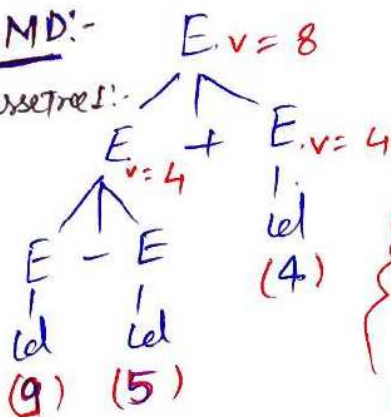 MD:-
E.v = 8
ssetree1:-
E.v=4 + E.v=4
E - E id
(4)
id id
(9) (5)